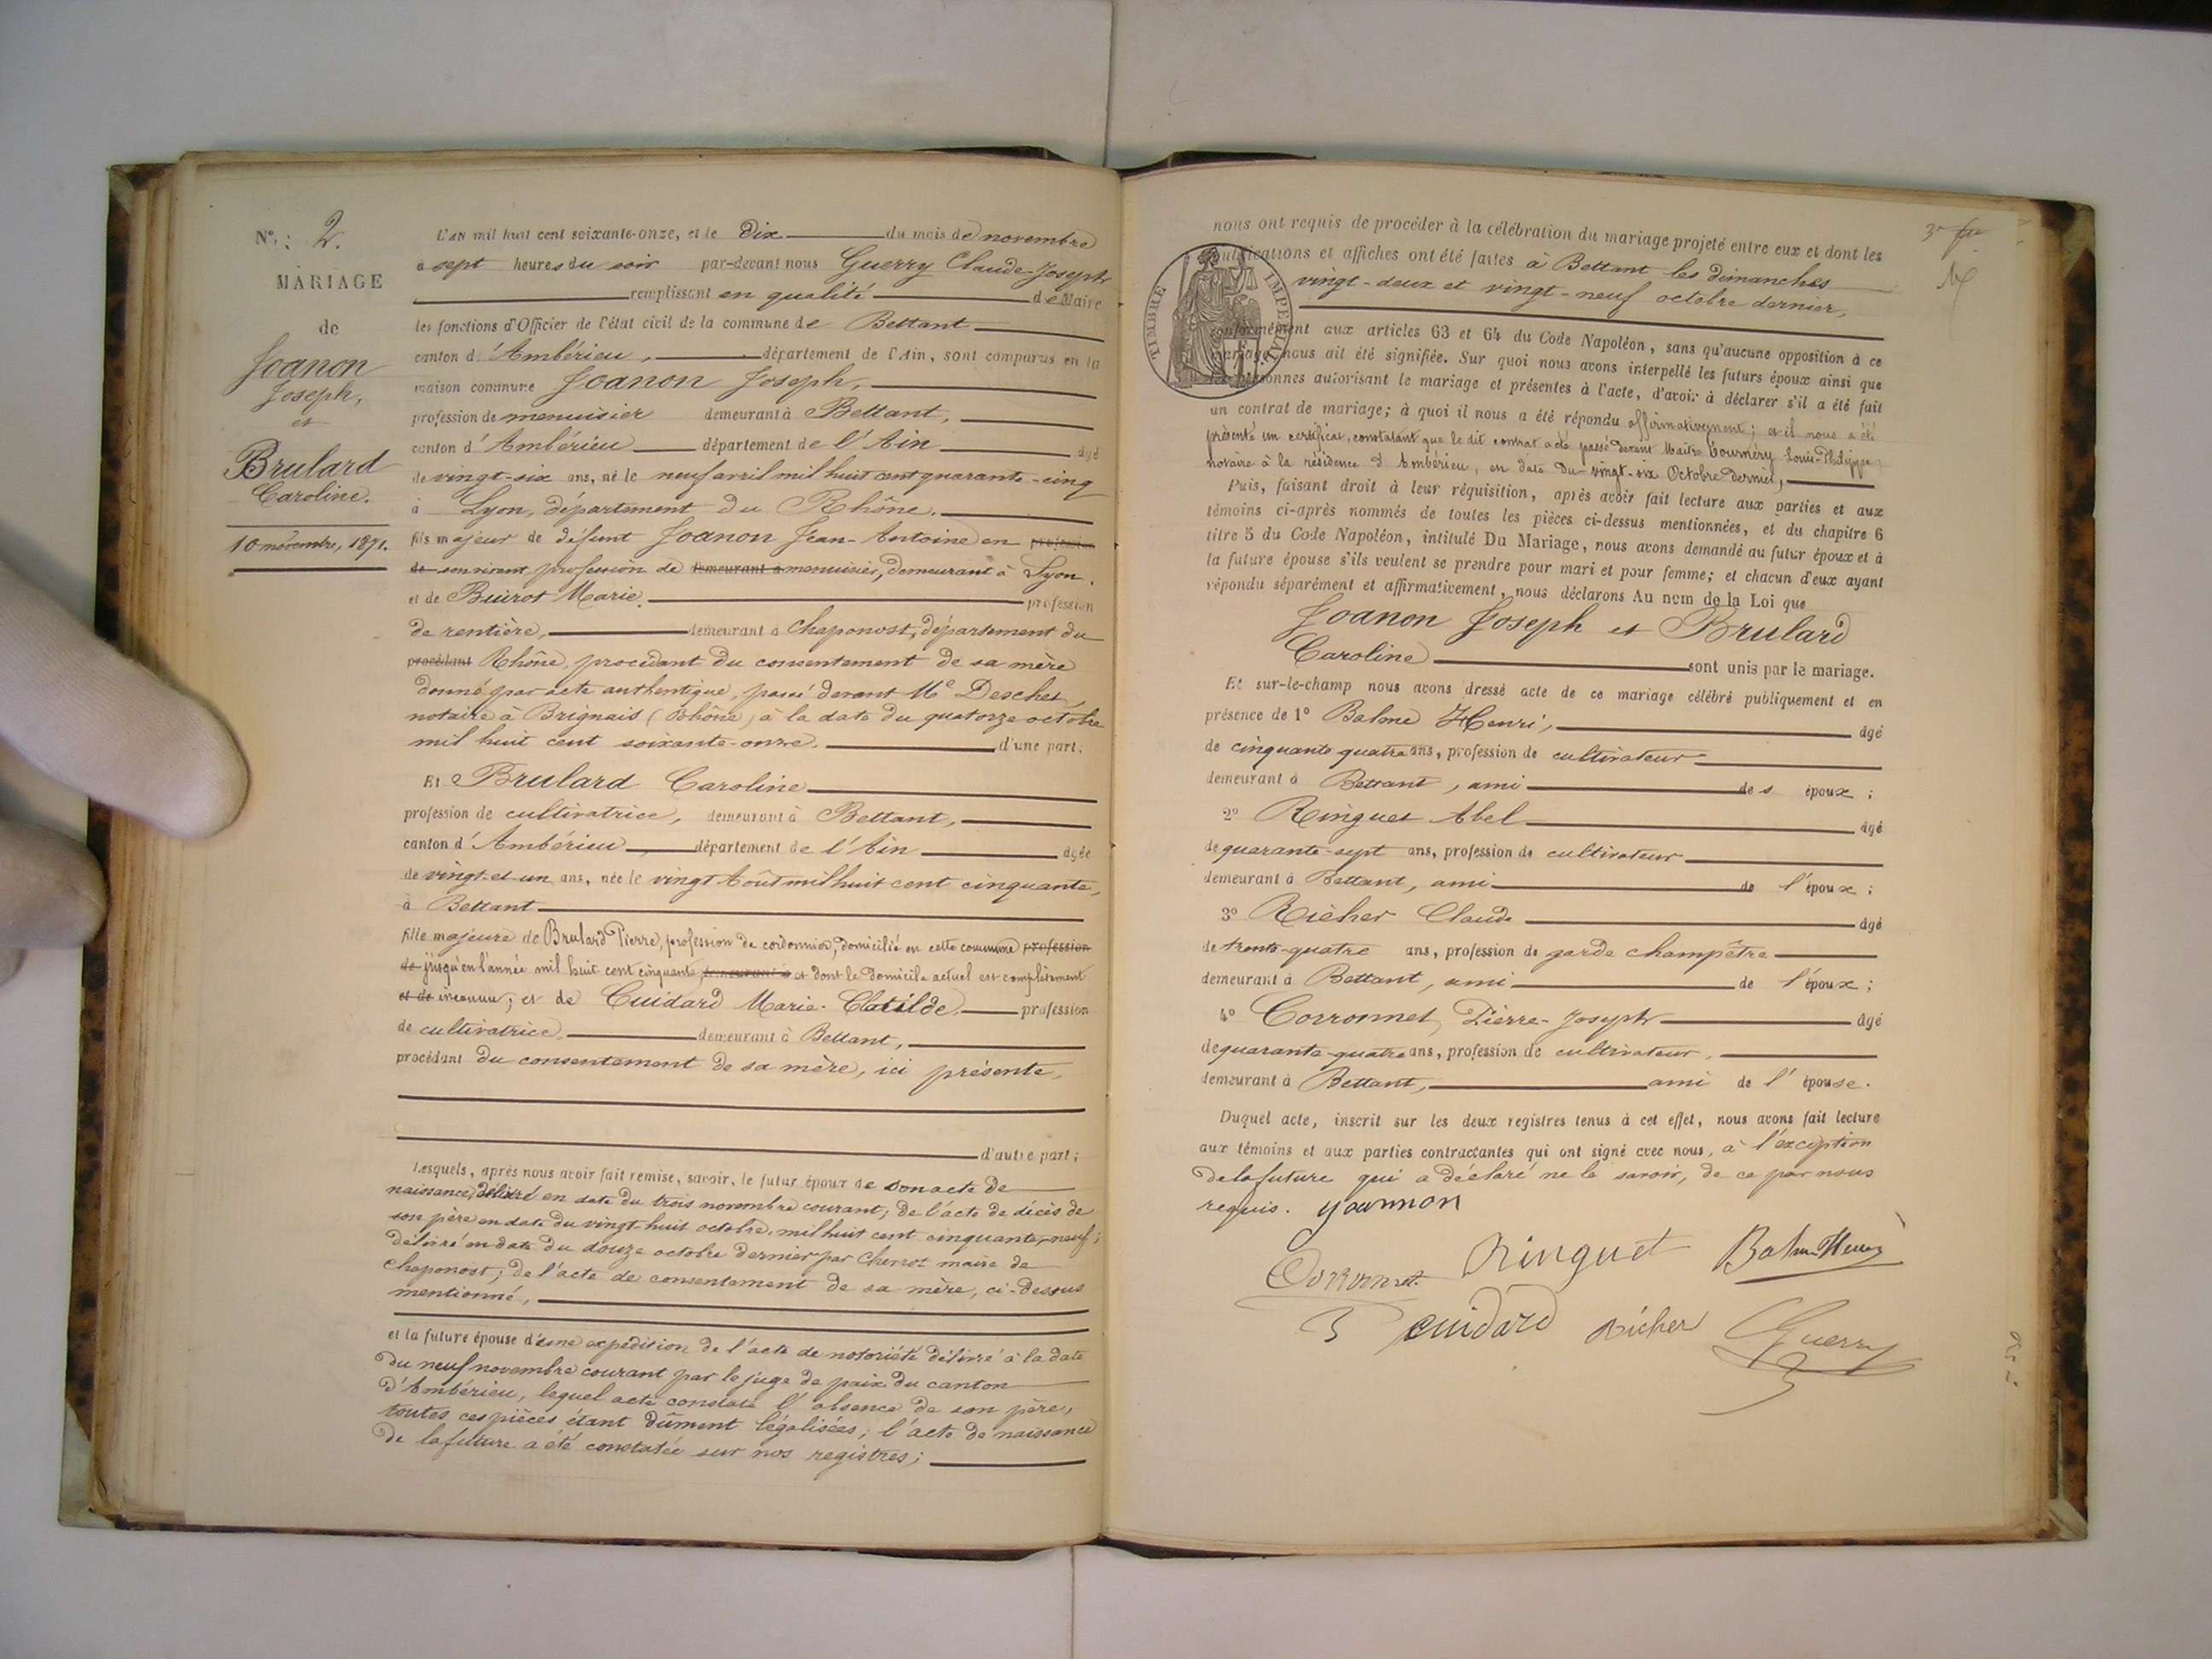 N°: 2.
MARIAGE
de
Joanon
Joseph,
et
Brulard
Caroline.
10 novembre, 1871.
L'AN mil huit cent soixante-onze, et le Dix du mois de novembre
à sept heures du soir par-devant nous Guerry Claude-Joseph
remplissant en qualité de Maire
les fonctions d'Officier de l'état civil de la commune de Bettant
canton d'Ambérieu, département de l'Ain, sont comparus en la
maison commune Joanon Joseph,
profession de menuisier demeurant à Bettant,
canton d'Ambérieu département de l'Ain âgé
de vingt-six ans, né le neuf avril mil huit cent quarante-cinq
à Lyon, département du Rhône.
fils majeur de défunt Joanon Jean-Antoine en profession
de son vivant profession de demeurant à menuisier, demeurant à Lyon.
et de Marie. profession
de rentière, demeurant à Chaponost, département du
procédant Rhône, procédant du consentement de sa mère
donné par acte authentique, passé devant Me Deschet,
notaire à Brignais (Rhône) à la date du quatorze octobre
mil huit cent soixante-onze. d'une part;
Et Brulard Caroline
profession de cultivatrice, demeurant à Bettant,
canton d'Ambérieu, département de l'Ain âgée
de vingt-et-un ans, née le vingt Août mil huit cent cinquante,
à Bettant
fille majeure de Brulard Pierre, profession de cordonnier, domicilié en cette commune profession
de jusqu'en l'année mil huit cent cinquante, demeurant à et dont le domicile actuel est complètement
et de inconnu; et de Cuidard Marie-Clotilde. profession
de cultivatrice, demeurant à Bettant,
procédant du consentement de sa mère, ici présente,
d'autre part;
Lesquels, après nous avoir fait remise, savoir, le futur époux de son acte de
naissance, délivré en date du trois novembre courant; de l'acte de décès de
son père en date du vingt-huit octobre, mil huit cent cinquante-neuf;
délivré en date du douze octobre dernier par maire de
Chaponost; de l'acte de consentement de sa mère, ci-dessus
mentionné,
et la future épouse d'une expédition de l'acte de notoriété délivré à la date
du neuf novembre courant par le juge de paix du canton
d'Ambérieu, lequel acte constate l'absence de son père,
toutes ces pièces étant dûment légalisées; l'acte de naissance
de la future a été constatée sur nos registres;
nous ont requis de procéder à la célébration du mariage projeté entre eux et dont les
publications et affiches ont été faites à Bettant les dimanches
vingt-deux et vingt-neuf octobre dernier,
TIMBRE IMPÉRIAL
conformément aux articles 63 et 64 du Code Napoléon, sans qu'aucune opposition à ce
mariage nous ait été signifiée. Sur quoi nous avons interpellé les futurs époux ainsi que
les personnes autorisant le mariage et présentes à l'acte, d'avoir à déclarer s'il a été fait
un contrat de mariage; à quoi il nous a été répondu affirmativement; et il nous a été
présenté un certificat, constatant que le dit contrat a été passé devant Maître Louis-Philippe,
notaire à la résidence d'Ambérieu, en date du vingt-six Octobre dernier,
Puis, faisant droit à leur réquisition, après avoir fait lecture aux parties et aux
témoins ci-après nommés de toutes les pièces ci-dessus mentionnées, et du chapitre 6
titre 5 du Code Napoléon, intitulé Du Mariage, nous avons demandé au futur époux et à
la future épouse s'ils veulent se prendre pour mari et pour femme; et chacun d'eux ayant
répondu séparément et affirmativement, nous déclarons Au nom de la Loi que
Joanon Joseph et Brulard
Caroline sont unis par le mariage.
Et sur-le-champ nous avons dressé acte de ce mariage célébré publiquement et en
présence de 1° Balme Henri, âgé
de cinquante quatre ans, profession de cultivateur
demeurant à Bettant, ami des époux;
2° Ringuet Abel âgé
de quarante-sept ans, profession de cultivateur
demeurant à Bettant, ami de l'époux;
3° Richer Claude âgé
de trente-quatre ans, profession de garde champêtre
demeurant à Bettant, ami de l'époux;
4° Corronnet, Pierre-Joseph âgé
de quarante-quatre ans, profession de cultivateur,
demeurant à Bettant, ami de l'épouse.
Duquel acte, inscrit sur les deux registres tenus à cet effet, nous avons fait lecture
aux témoins et aux parties contractantes qui ont signé avec nous, à l'exception
de la future qui a déclaré ne le savoir, de ce par nous
requis. yoannon
Corronnet Ringuet Balme Henri
Cuidard Richer Guerry